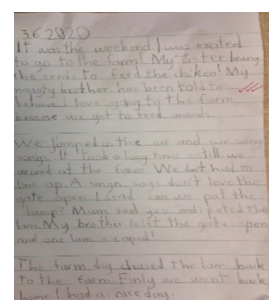 3.6.2020
It was the weekend I was exated
to go to the farm! My sister brang
the seeds to feed the chiken! My
naughty brother has been told to
behave I love going to the farm
because we get to feed animals.
We jumped in the car and we sang
songs. It took a long time until we
arived at the farm. We didn't had to
line up. A sign says don't leave the
gate open. I said can we pat the
lamp? Mum said yes and pated the
lam. My brother left the gate open
and one lam escaped!
The farm dog chased the lam back
to the farm. Finly we went back
home I had a nice day.